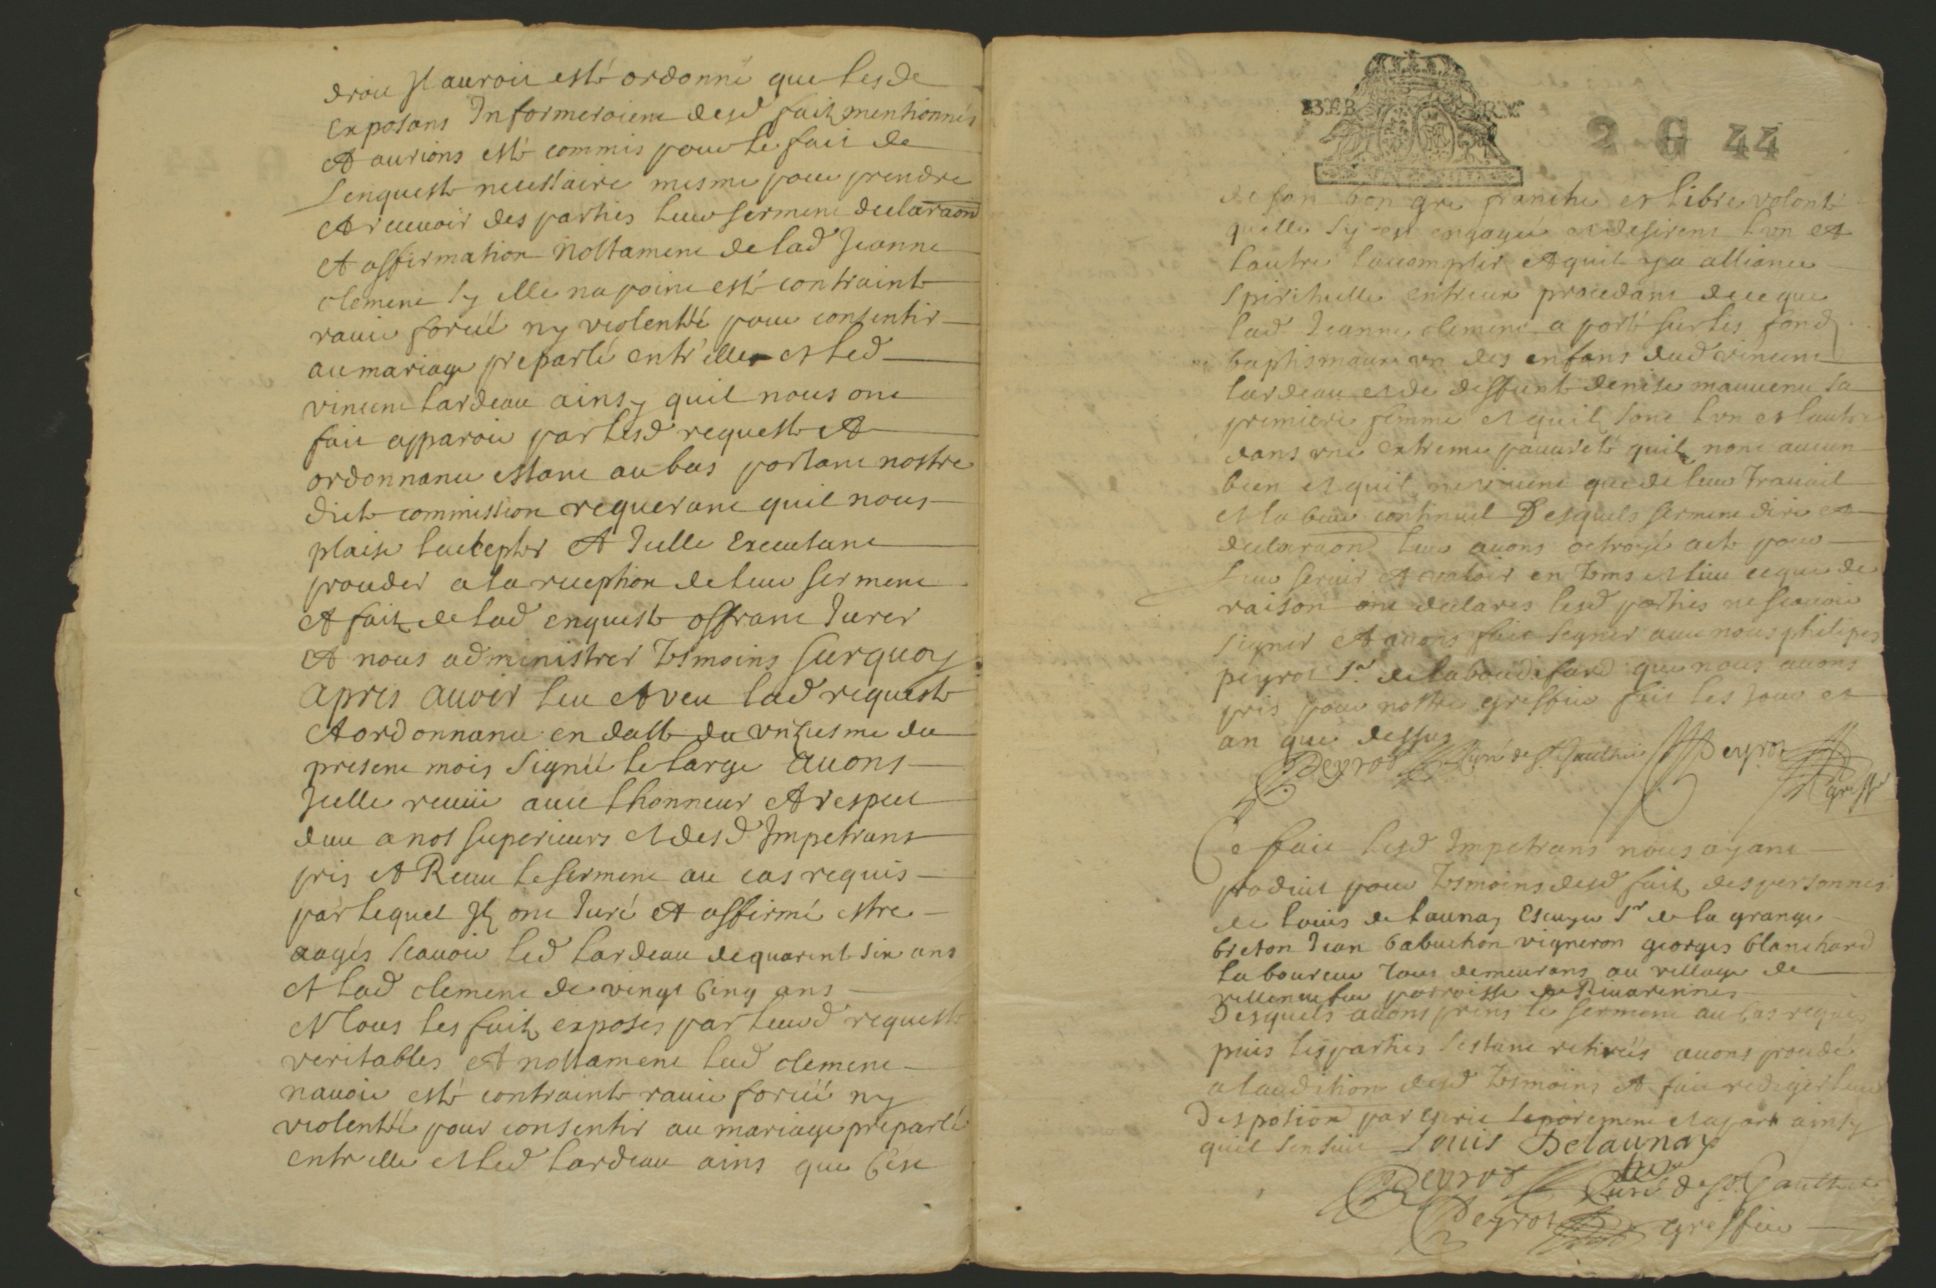 droit Jl auroit esté ordonné que lesde
Exposans Informeroient desd faitz mentionnés
Et aurions esté commis pour le fait de
Lenqueste necessaire mesme pour prendre
Et recevoir des parties leur serment declaraon
Et affirmation Nottament de lad Jeanne
clement sy elle na point esté contrainte
ravie forcéé ny violentéé pour consentir
au mariage preparlé entr'elle et led
vincent Lardeau ainsy quil nous ont
fait apparoir par lesd requeste Et
ordonnance estant au bas portant nostre
dicte commission requerant quil nous
plaise l'accepter Et Jcelle Executant
proceder a la reception de leur serment
Et faitz de lad enqueste offrant Jurer
Et nous administrer tesmoins Surquoy
apres avoir leu Et veu lad requeste
Et ordonnance en datte du unziesme du
present mois signéé le large avons
Jcelle receüe avec lhonneur Et respect
deue a nos superieurs et desd Impetrans
pris Et Receu le serment au cas requis
par lequel Jlz ont Juré Et affirmé estre
aagés scavoir led Lardeau de quarente six ans
Et lad clement de vingt cinq ans
Et tous les faitz exposés par leurd requeste
veritables Et nottament lad clement
navoir esté contrainte ravie forcéé ny
violentéé pour consentir au mariage preparlé
entr elle et led Lardeau ains que cest
BER RY
2 G 44
de son bon gre franche et libre volonté
quelle sy est engagéé et desirent lun Et
lautre laccomplir Et quil y a alliance
spirituelle entreux procedant de ce que
lad Jeanne clement a porté sur les fondz
baptismaux un des enfans dud vincent
Lardeau et de deffunte denise mauvenu sa
premiere femme et quilz sont lun et lautre
dans une extreme pauvreté quilz nont aucun
bien et quilz ne vivent que de leur travail
et labeur continuel Desquels serment dire Et
declaraon leur avons octroyé acte pour
leur servir Et valoir en tems et lieu ce que de
raison ont declarés lesd parties ne scavoir
signer Et avons fait signer avec nous philipes
peyrot Sr de que nous avons
pris pour nostre greffier fait les jour et
an que dessus
Peyrot Curé de St Gaultier Peyrot
greffr
Ce fait lesd Impetrans nous ayant
produit pour tesmoins desd faitz des personnes
de Louis delaunay Escuyer Sr de la grange
breton Jean babuchon vigneron georges blanchard
laboureur tous demeurans au village de
paroisse de Rivarennes
Desquels avons prins le serment au cas requis
puis les parties s'estant retiréés avons procedé
a laudition desd tesmoins Et fait rediger leur
Desposion par escrit separement et apart ainsy
quil sensuit Louis Delaunay
Peyrot Curé de St Gaultier
Peyrot greffier